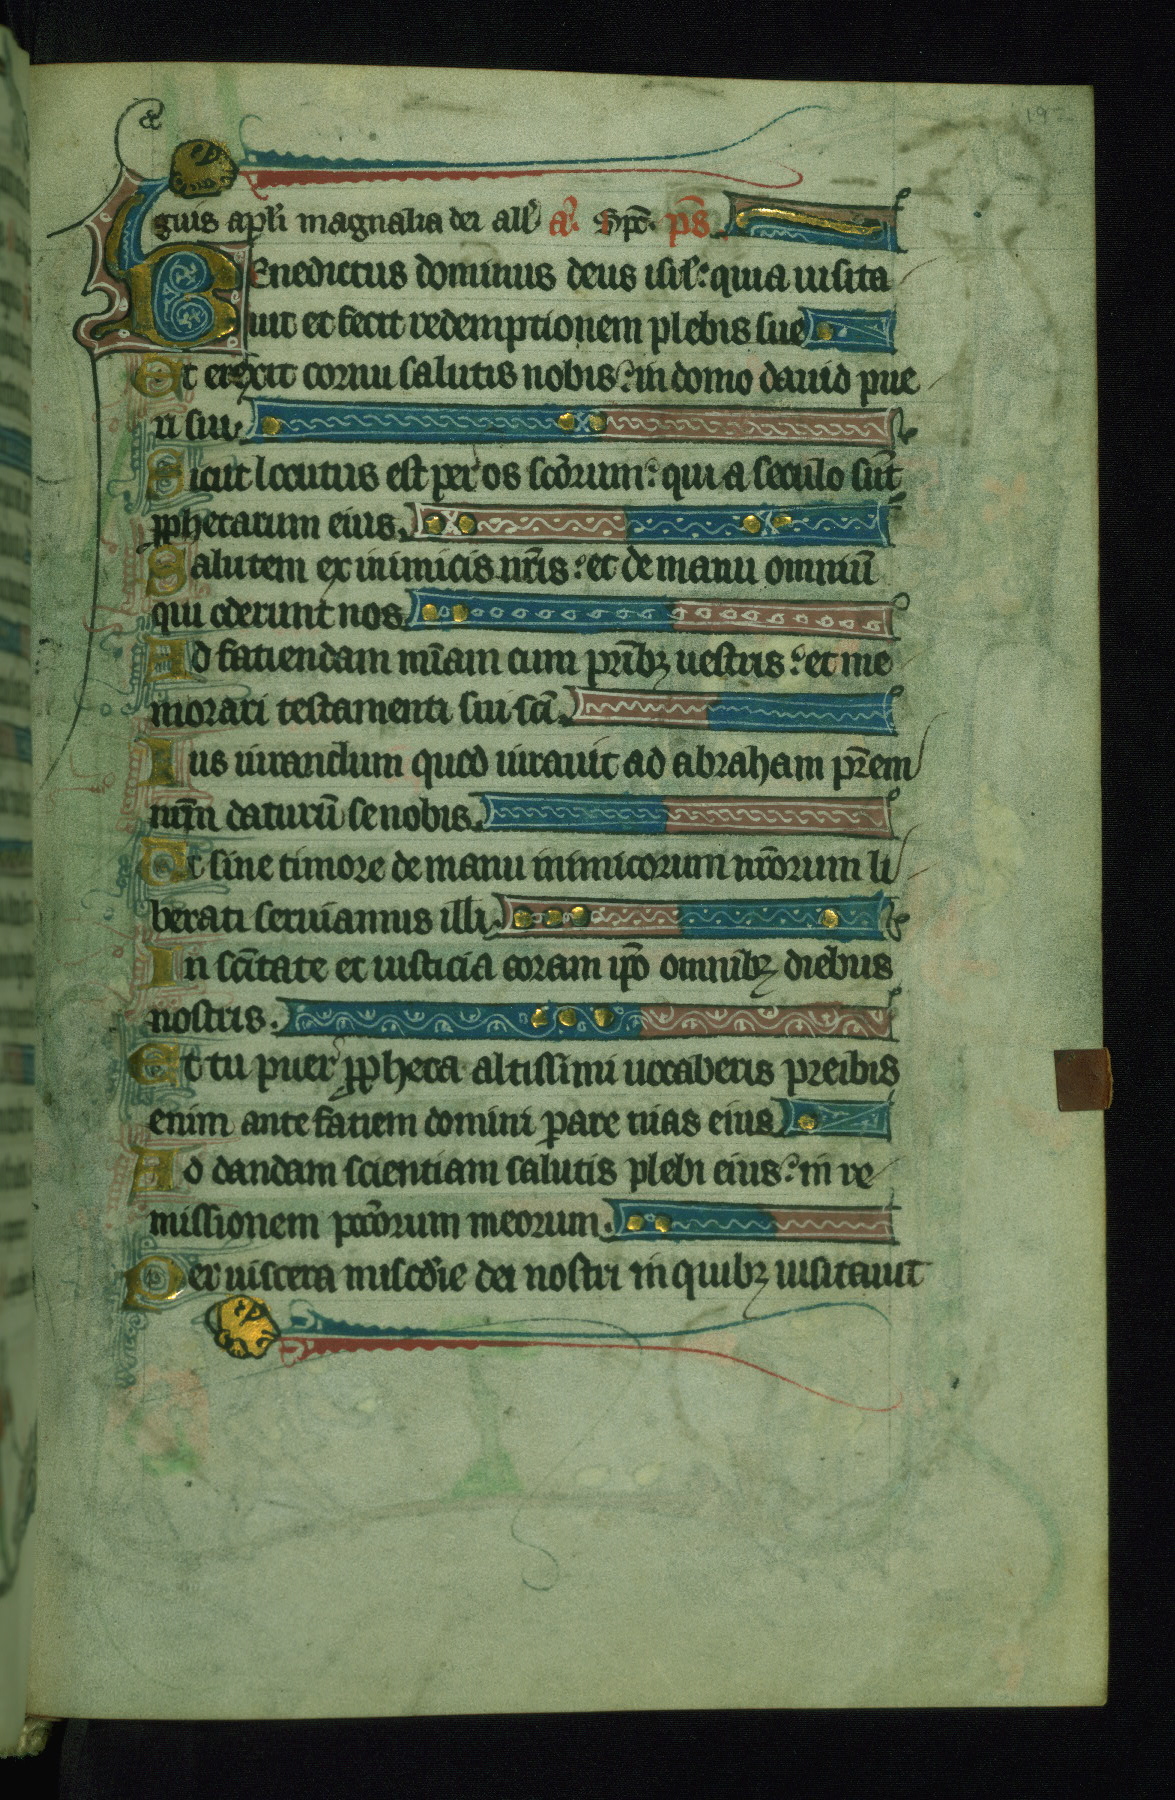 192
guis apl'i magnalia dei all' a'. Sp̄c. ps̄
Benedictus dominus deus isrl': quia uisita
uit et fecit redemptionem plebis sue
Et erexit cornu salutis nobis: in domo dauid pue
ri sui.
Sicut locutus est per os scōrum: qui a seculo sūt
ꝓphetarum eius.
Salutem ex inimicis nr̄is: et de manu omniū
qui oderunt nos.
Ad faciendam mīam cum pr̄ibꝫ uestris: et me
morari testamenti sui scī.
Ius iurandum quod iurauit ad abraham pr̄em
nr̄m daturū se nobis.
Ut sine timore de manu inimicorum nr̄orum li
berati seruiamus illi.
In scītate et iusticia coram ip̄o omnibꝫ diebus
nostris.
Et tu puer ꝓpheta altissimi uocaberis preibis
enim ante faciem domini ꝑare uias eius
Ad dandam scientiam salutis plebi eius: in re
missionem pcc̄orum meorum.
Per uiscera miscd̄ie dei nostri in quibꝫ uisitauit